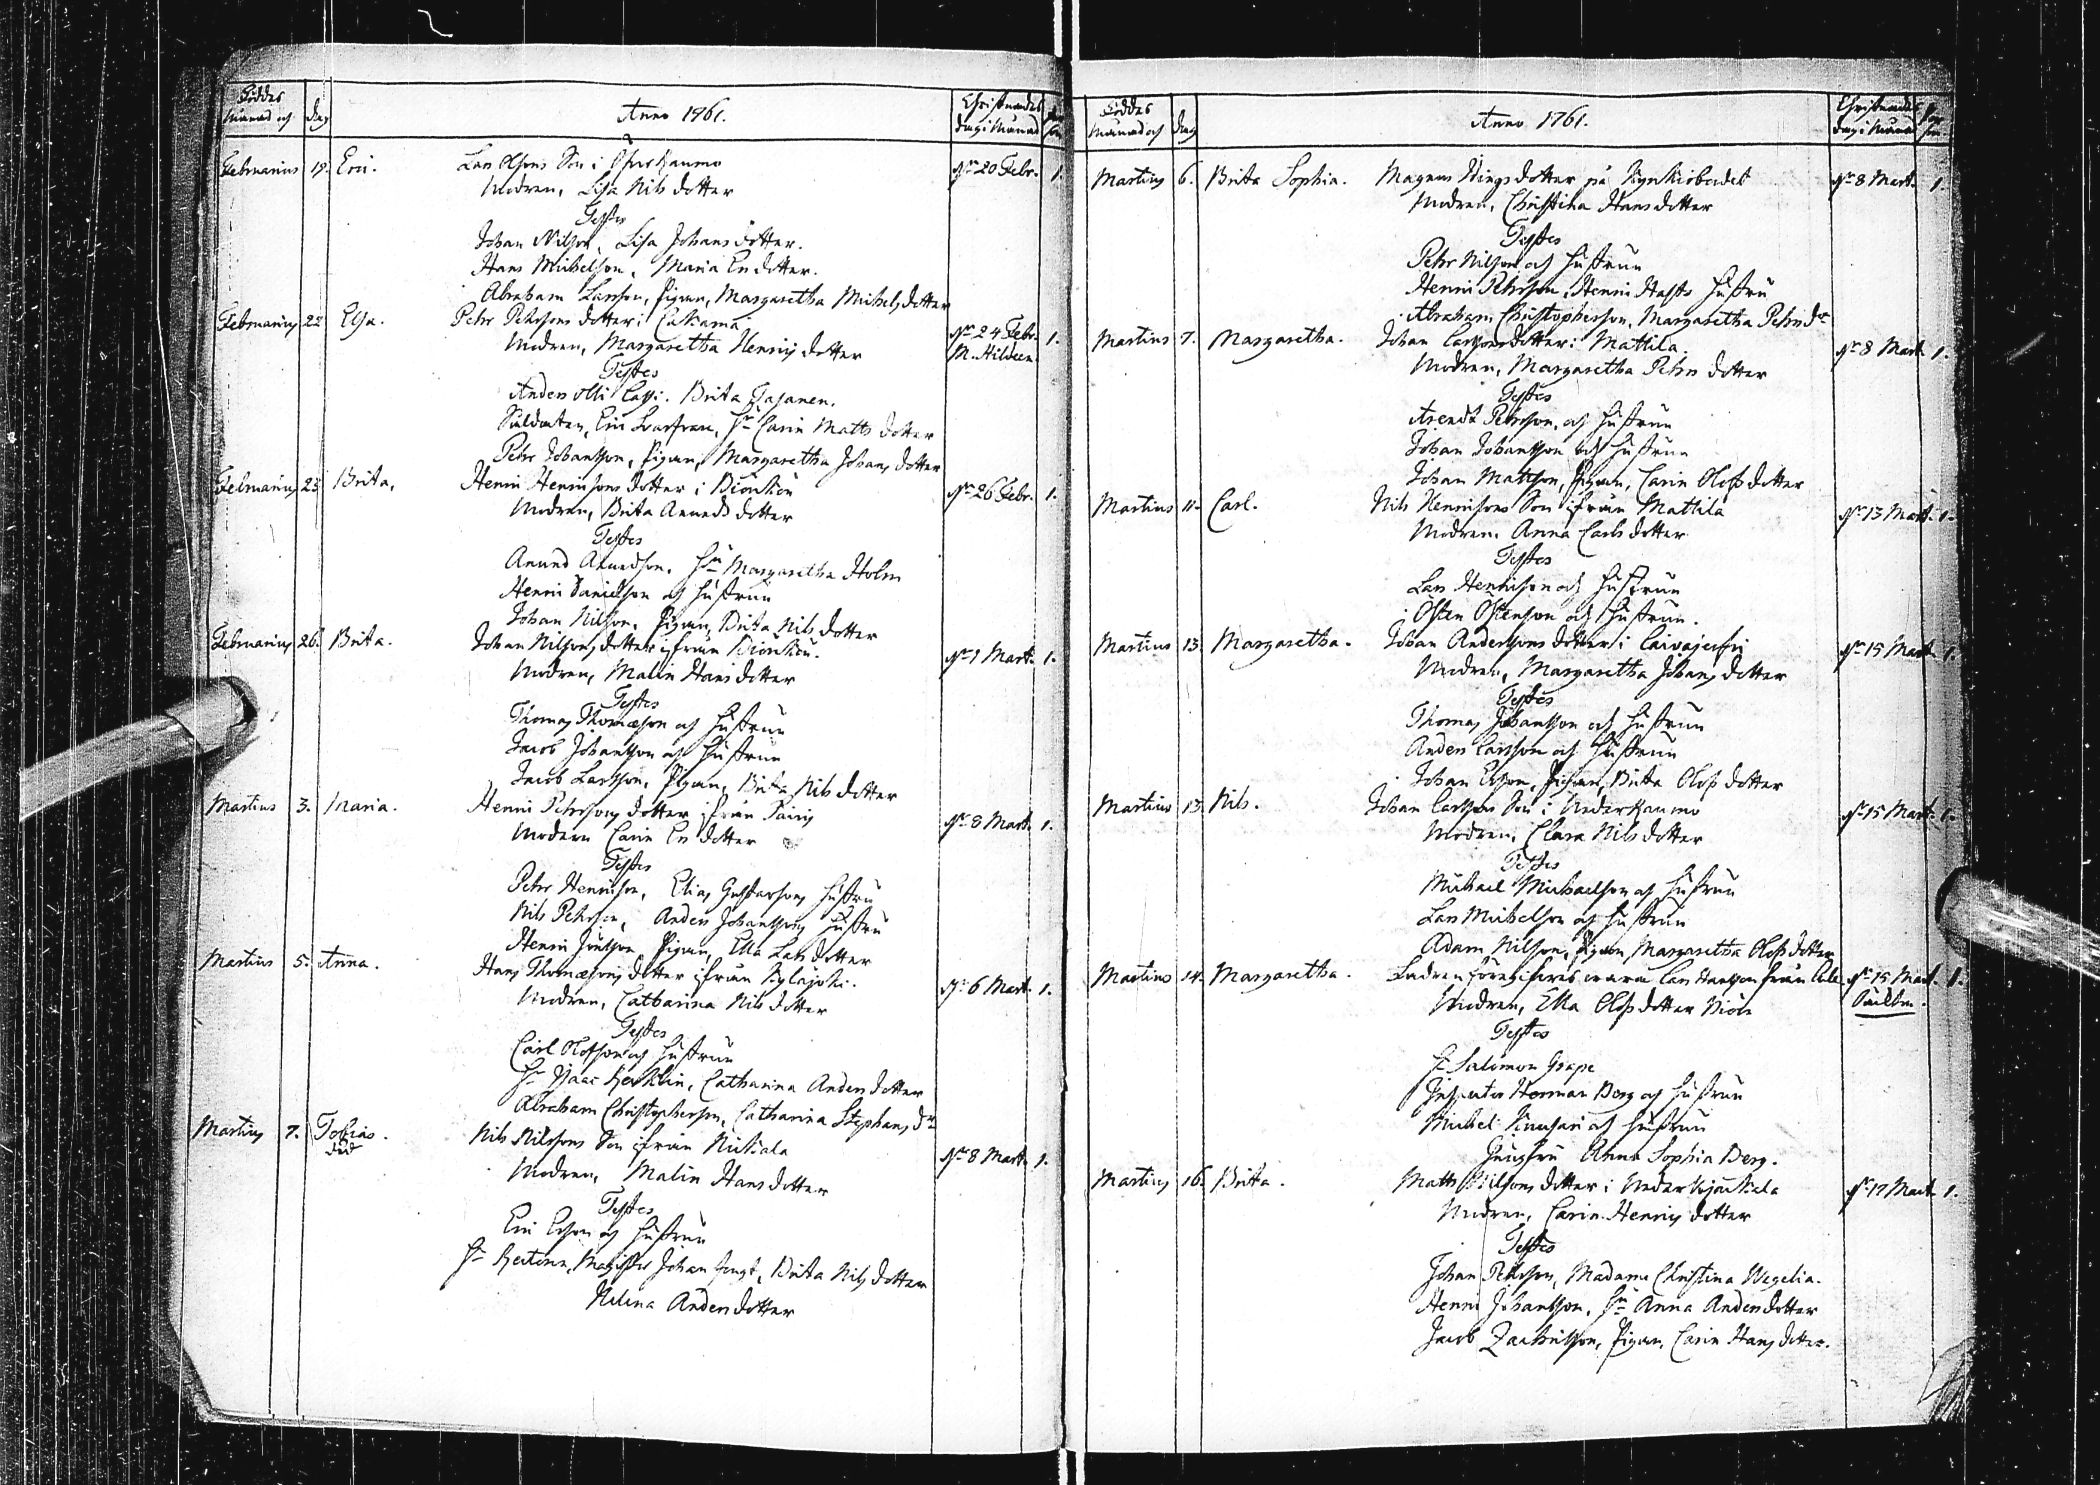 Födde Månad och dag
Anno 1761.
Christnades dag i Månad
Februarius 19. Eric. Lars Olssons Son i dn 20 Febr. 1.
Modren, Lisa Nils dotter
Testes
Johan Nilsson, Lisa Johans dotter.
Hans Michelsson, Maria Ers dotter.
Abraham Larsson, Pigan, Margaretha Michels dotter
Februarius 22 Elsa. Pehr Pehrssons dotter i dn 24 Febr. 1.
Modren, Margaretha Henrics dotter M. Hildeen.
Testes
Anders Olli Lassi. Brita Tajanen.
Soldaten, Eric hu Carin Matts dotter
Pehr Johansson, Pigan, Margaretha Johans dotter
Februarius 25 Brita. Henric Henricsons dotter i Biörkön dn 26 Febr. 1.
Modren, Brita Anunds dotter
Testes
Anund Anundson, hu Margaretha Holm
Henric Danielson och hustrun
Johan Nilsson, Pigan, Brita Nils dotter
Februarius 26. Brita. Johan Nilssons dotter ifrån Biörkön. dn 1 Mart. 1.
Modren, Malin Hans dotter
Testes
Thomas Thomæson och hustrun
Jacob Johansson och hustrun
Jacob Larsson, Pigan, Brita Nils dotter
Martius 3. Maria. Henric Pehrssons dotter ifrån dn 8 Mart. 1.
Modern Carin Ers dotter
Testes
Pehr Henricson, Elias Gustafsons hustru
Nils Pehrson, Anders Johanssons hustru
Henric Pigan, Ella Lars dotter
Martius 5. Anna. Hans Thomæsons dotter ifrån Kyläjoki. dn 6 Mart. 1.
Modren, Catharina Nils dotter
Testes
Carl Olofson och hustrun
Hr Isaac Catharina Anders dotter
Abraham Christophersson, Catharina Stephans dr
Martius 7. Tobias. Nils Nilssons Son ifrån Kuckala dn 8 Mart. 1.
död
Modren, Malin Hans dotter
Testes
Eric Ersson och hustrun
Hr Rectorn, Magister Johan Brita Nils dotter
Helena Anders dotter
Födde Månad och dag
Anno 1761.
Christnades dag i Månad
Martius 6. Brita Sophia. Magnus dotter på dn 8 Mart. 1
Modren, Christina Hans dotter
Testes
Pehr Nilsson och hustrun
Henric Pehrsson, Henric hustru
Abraham Christophersson, Margaretha Pehrs dr
Martius 7. Margaretha. Johan Larssons dotter i Mattila dn 8 Mart. 1.
Modren, Margaretha Pehrs dotter
Testes
Arendt Pehrsson, och hustrun
Johan Johansson och hustrun
Johan Mattson, Pigan, Carin Olofs dotter
Martius 11. Carl. Nils Henricsons Son ifrån Mattila dn 13 Mart. 1.
Modren, Anna Carls dotter
Testes
Lars Henricson och hustrun
Östen Östenson och hustrun.
Martius 13. Margaretha. Johan Anderssons dotter i dn 15 Mart. 1.
Modren, Margaretha Johans dotter
Testes
Thomas Johansson och hustrun
Anders Larsson och hustrun
Johan Ersson, Pigan, Brita Olofs dotter
Martius 13. Nils. Johan Larssons Son i dn 15 Mart. 1.
Modren, Clara Nils dotter
Testes
Michael Michaelson och hustrun
Lars Michelson och hustrun
Adam Nilsson, Pigan, Margaretha Olofs dotter
Martius 14. Margaretha. Fadren föregifves wara Lars Hansson från dn 15 Mart. 1.
Modren, Ella Olofs dotter
Testes
Hr Salomon Grape
Inspector Herman Berg och hustrun
Michel och hustrun
Jungfru Anna Sophia Berg.
Martius 16. Brita. Matts Nilssons dotter i dn 17 Mart. 1.
Modren, Carin Henrics dotter
Testes
Johan Pehrsson, Madame Christina Wegelia.
Henric Johansson, hu Anna Anders dotter
Jacob Zachrisson, Pigan, Carin Hans dotter.